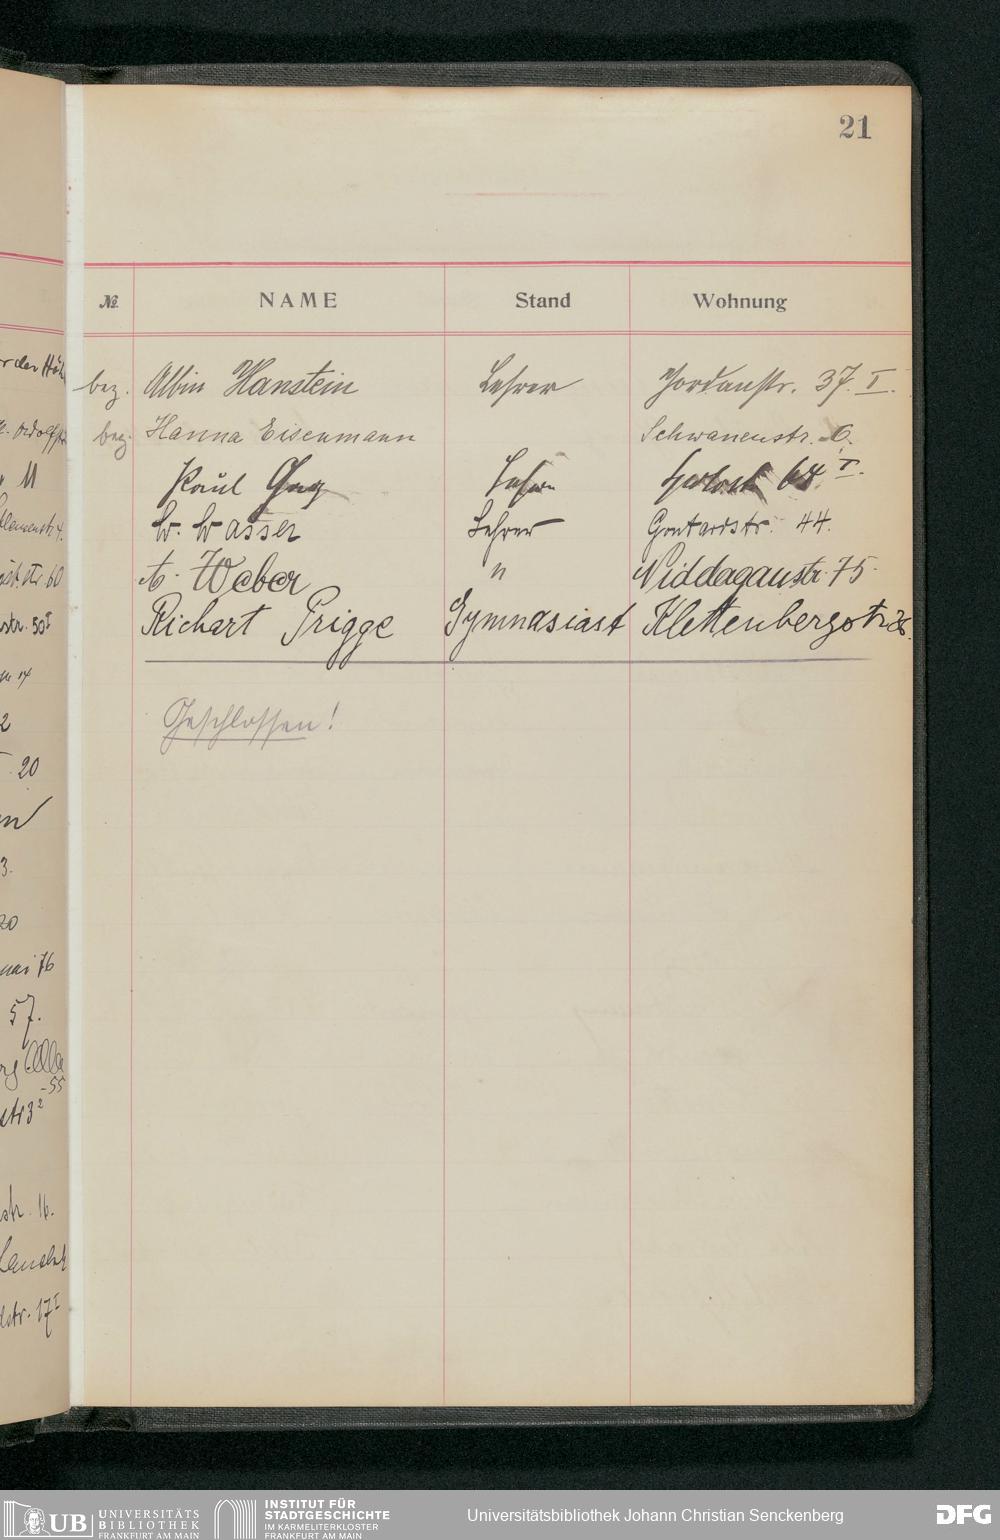 21
№ NAME Stand Wohnung
bez. Albin Hanstein Lehrer Jordanstr. 37. I.
bez. Hanna Eisenmann Schwanenstr. 6.
Paul Lehrer 64 I.
W. Wasser Lehrer Gontardstr. 44.
A. Weber " Niddagaustr. 75.
Richart Prigge Gymnasiast Klettenbergstr
Geschlossen!
11
str. 50 I
2
20
3.
20
57.
-55
str. 16.
str. 17 I
UB UNIVERSITÄTS
BIBLIOTHEK
FRANKFURT AM MAIN
INSTITUT FÜR
STADTGESCHICHTE
IM KARMELITERKLOSTER
FRANKFURT AM MAIN
Universitätsbibliothek Johann Christian Senckenberg
DFG